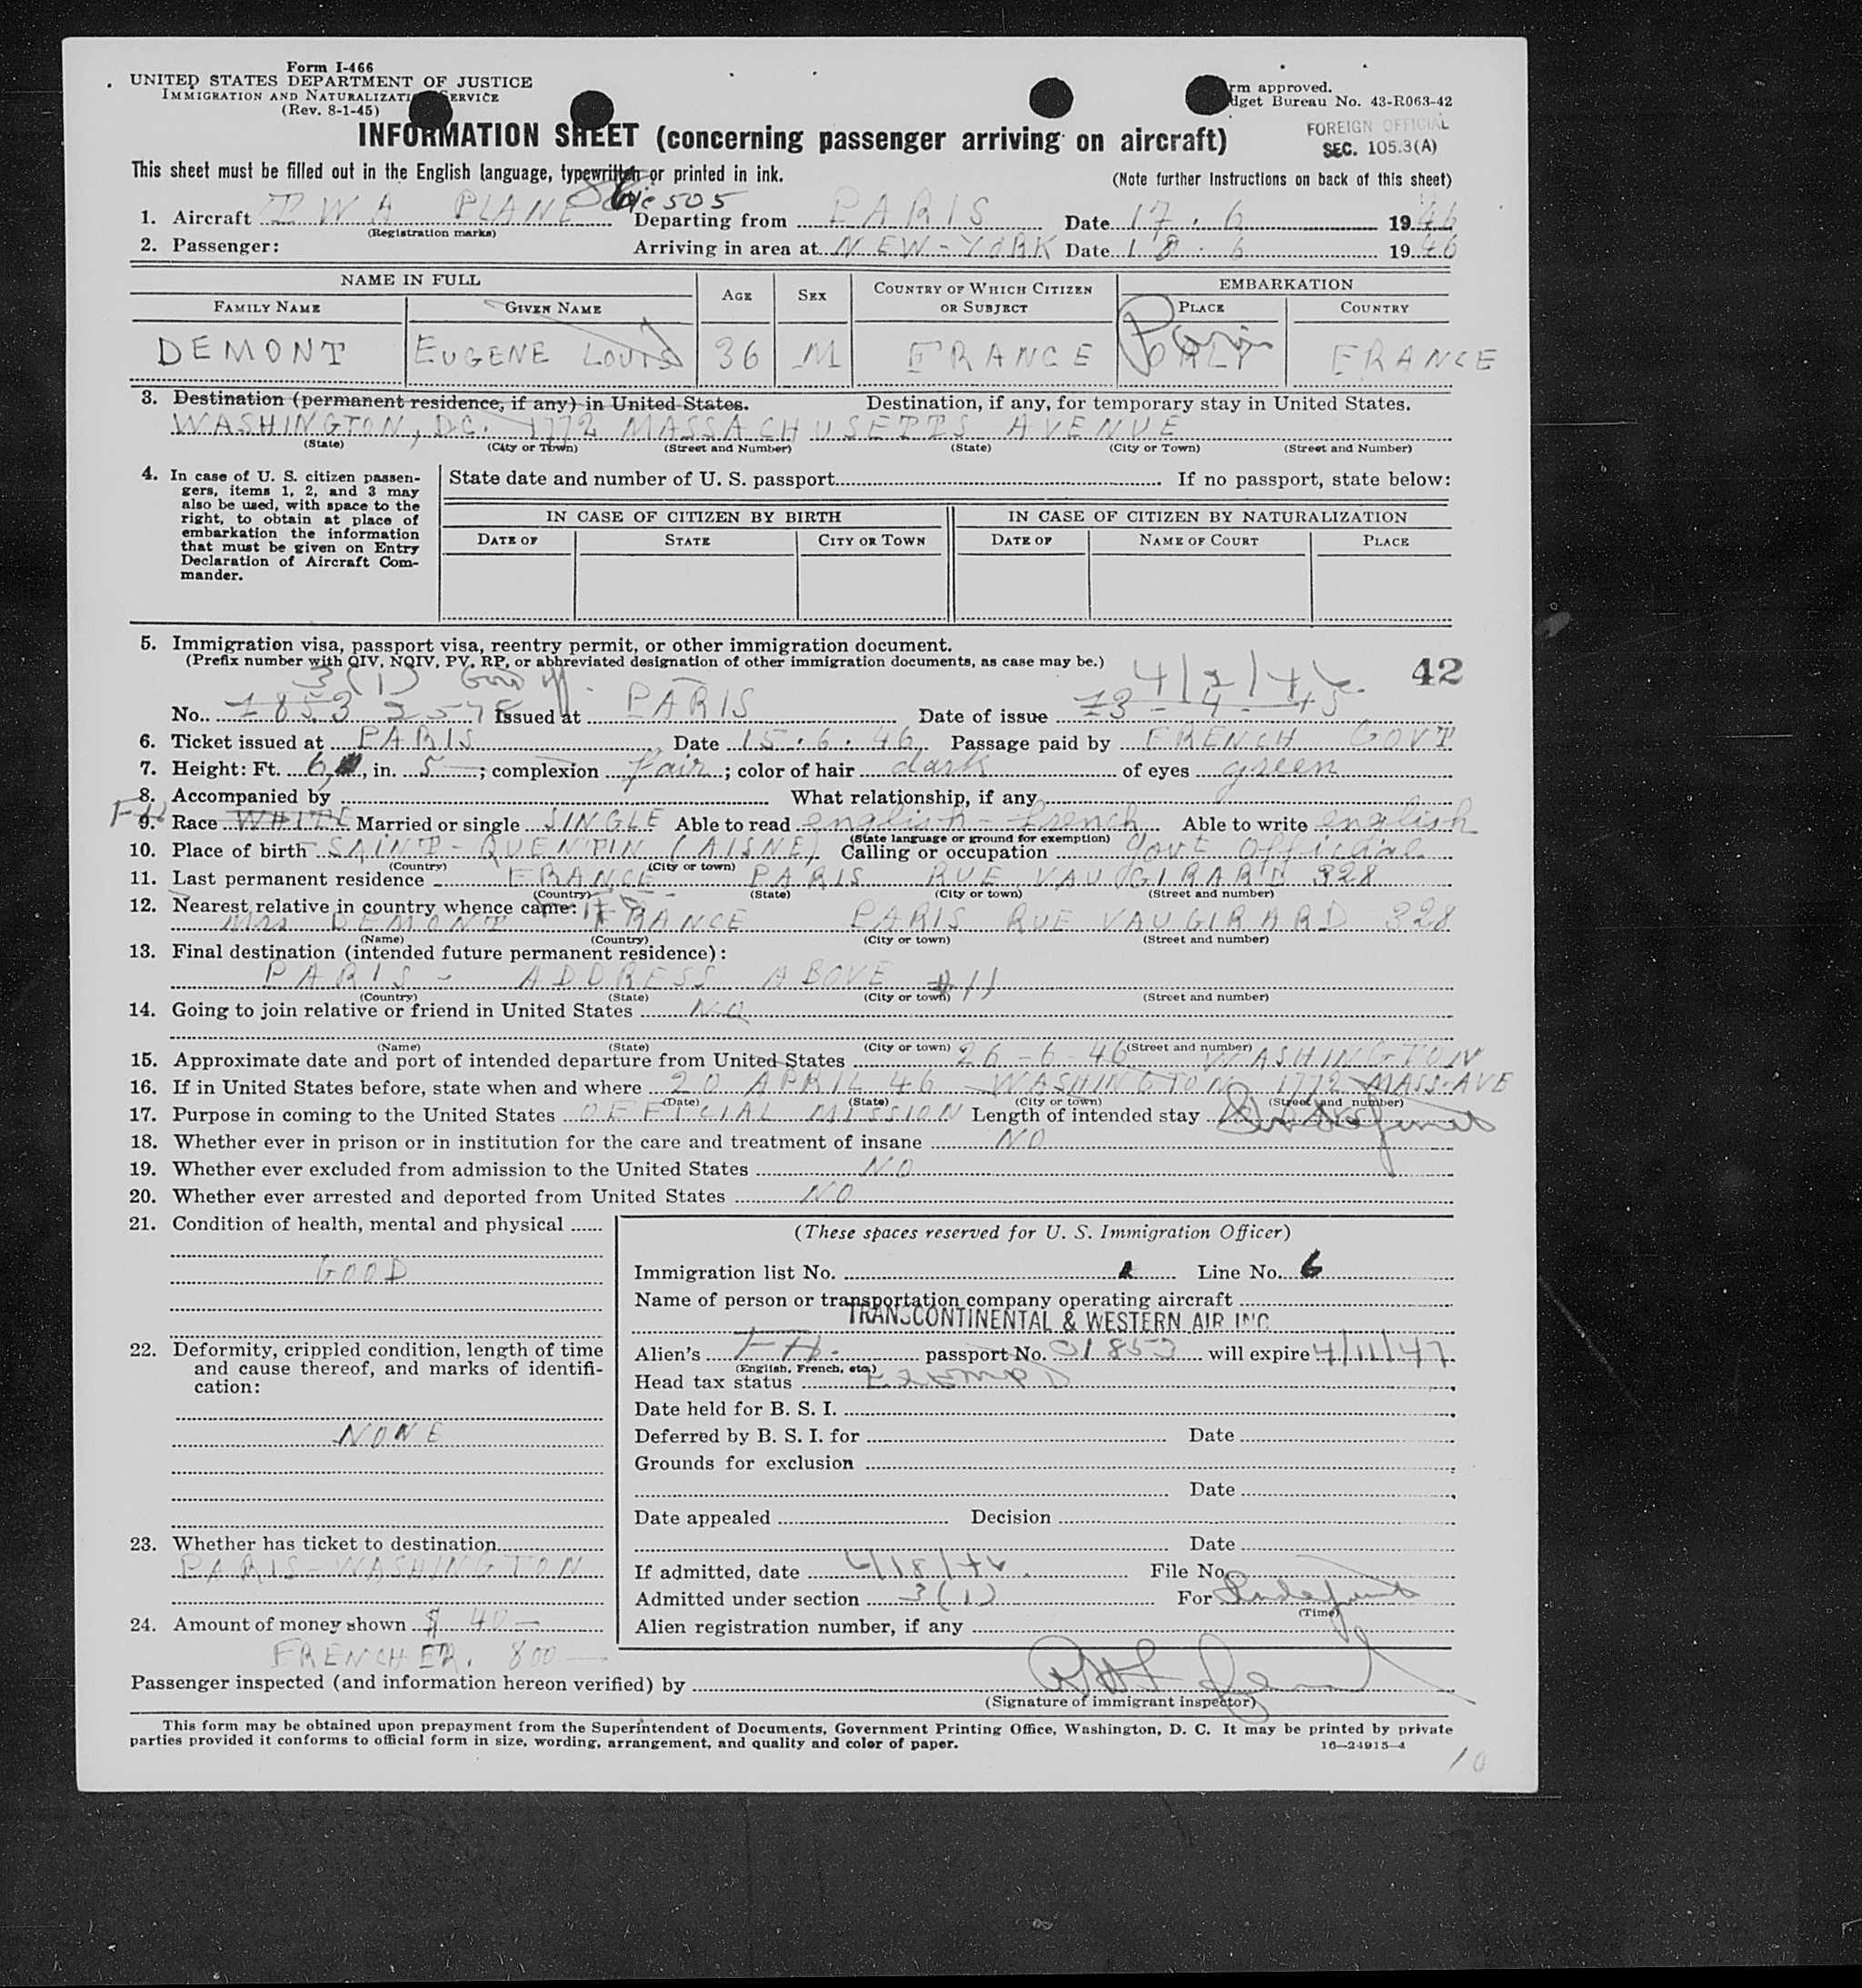 Form I-466
UNITED STATES DEPARTMENT OF JUSTICE
IMMIGRATION AND NATURALIZATION SERVICE
(Rev. 8-1-45)
rm approved.
dget Bureau No. 43-R063-42
FOREIGN OFFICIAL
SEC. 105.3(A)
INFORMATION SHEET (concerning passenger arriving on aircraft)
This sheet must be filled out in the English language, typewritten or printed in ink.
(Note further instructions on back of this sheet)
1. Aircraft TWA PLANE 505 Departing from PARIS Date 17.6 1946
(Registration marks)
2. Passenger: Arriving in area at NEW-YORK Date 18.6 1946
NAME IN FULL AGE SEX COUNTRY OF WHICH CITIZEN OR SUBJECT EMBARKATION
FAMILY NAME GIVEN NAME PLACE COUNTRY
DEMONT EUGENE LOUIS 36 M FRANCE ORLY Paris FRANCE
3. Destination (permanent residence, if any) in United States. Destination, if any, for temporary stay in United States.
WASHINGTON, D.C. 1772 MASSACHUSETTS AVENUE
(State) (City or Town) (Street and Number) (State) (City or Town) (Street and Number)
4. In case of U. S. citizen passen-
gers, items 1, 2, and 3 may
also be used, with space to the
right, to obtain at place of
embarkation the information
that must be given on Entry
Declaration of Aircraft Com-
mander.
State date and number of U. S. passport If no passport, state below:
IN CASE OF CITIZEN BY BIRTH IN CASE OF CITIZEN BY NATURALIZATION
DATE OF STATE CITY OR TOWN DATE OF NAME OF COURT PLACE
5. Immigration visa, passport visa, reentry permit, or other immigration document.
(Prefix number with QIV, NQIV, PV, RP, or abbreviated designation of other immigration documents, as case may be.)
42
3(1) Gov off.
No. 1853 2578 Issued at PARIS Date of issue
6. Ticket issued at PARIS Date 15.6.46 Passage paid by FRENCH GOVT
7. Height: Ft. 6, in. 5; complexion fair; color of hair dark of eyes green
8. Accompanied by What relationship, if any
9. Race WHITE Married or single SINGLE Able to read english - french Able to write english
(State language or ground for exemption)
10. Place of birth SAINT-QUENTIN (AISNE) Calling or occupation Govt Official
(Country) (City or town)
11. Last permanent residence FRANCE PARIS RUE VAUGIRARD 328
(Country) (State) (City or town) (Street and number)
12. Nearest relative in country whence came:
Mrs DEMONT FRANCE PARIS RUE VAUGIRARD 328
(Name) (Country) (City or town) (Street and number)
13. Final destination (intended future permanent residence):
PARIS - ADDRESS ABOVE #11
(Country) (State) (City or town) (Street and number)
14. Going to join relative or friend in United States NO
(Name) (State) (City or town) (Street and number)
15. Approximate date and port of intended departure from United States 26-6-46 WASHINGTON
16. If in United States before, state when and where 20 APRIL 46 WASHINGTON 1772 MASS-AVE
(Date) (State) (City or town) (Street and number)
17. Purpose in coming to the United States OFFICIAL MISSION Length of intended stay
18. Whether ever in prison or in institution for the care and treatment of insane NO
19. Whether ever excluded from admission to the United States NO
20. Whether ever arrested and deported from United States NO
21. Condition of health, mental and physical
GOOD
22. Deformity, crippled condition, length of time
and cause thereof, and marks of identifi-
cation:
NONE
23. Whether has ticket to destination
PARIS-WASHINGTON
24. Amount of money shown $ 40-
FRENCH FR. 800
(These spaces reserved for U. S. Immigration Officer)
Immigration list No. Line No. 6
Name of person or transportation company operating aircraft
TRANSCONTINENTAL & WESTERN AIR INC
Alien's FR. passport No. 01853 will expire 4/11/47
(English, French, etc.)
Head tax status Exempt
Date held for B. S. I.
Deferred by B. S. I. for Date
Grounds for exclusion
Date
Date appealed Decision
Date
If admitted, date 6/18/46. File No.
Admitted under section 3(1) For Indefinite
(Time)
Alien registration number, if any
Passenger inspected (and information hereon verified) by
(Signature of immigrant inspector)
This form may be obtained upon prepayment from the Superintendent of Documents, Government Printing Office, Washington, D. C. It may be printed by private
parties provided it conforms to official form in size, wording, arrangement, and quality and color of paper.
16—24915-4
10